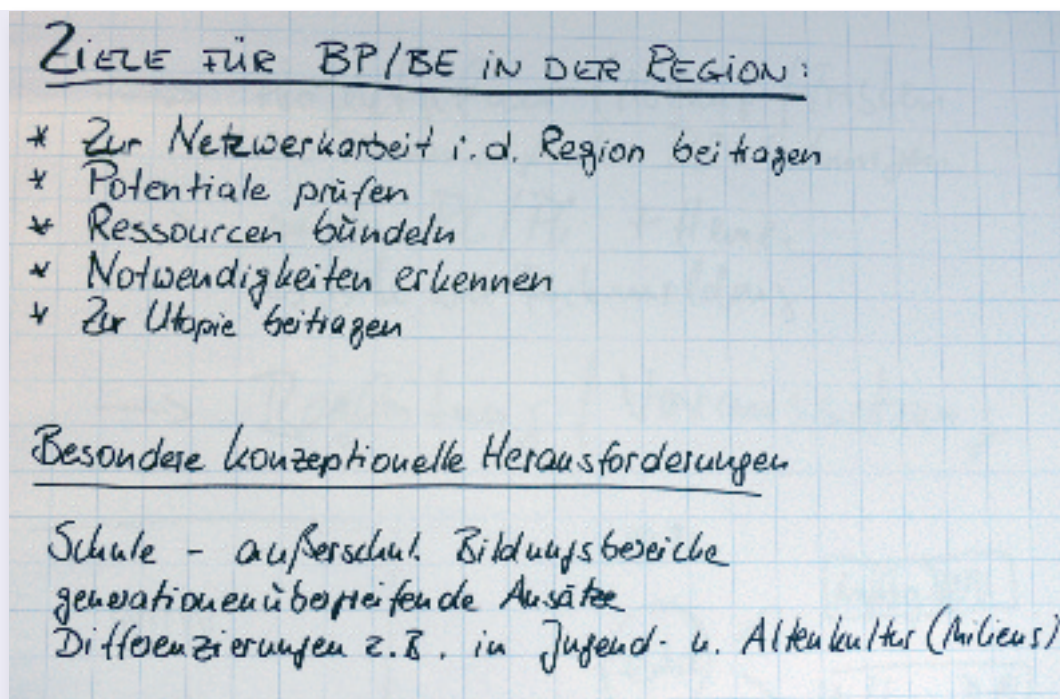 ZIELE FÜR BP/BE IN DER REGION:
* Zur Netzwerkarbeit i.d. Region beitragen
* Potentiale prüfen
* Ressourcen bündeln
* Notwendigkeiten erkennen
* Zur Utopie beitragen
Besondere konzeptionelle Herausforderungen
Schule - außerschul. Bildungsbereiche
generationenübergreifende Ansätze
Differenzierungen z.B. in Jugend- u. Altenkultur (Milieus)